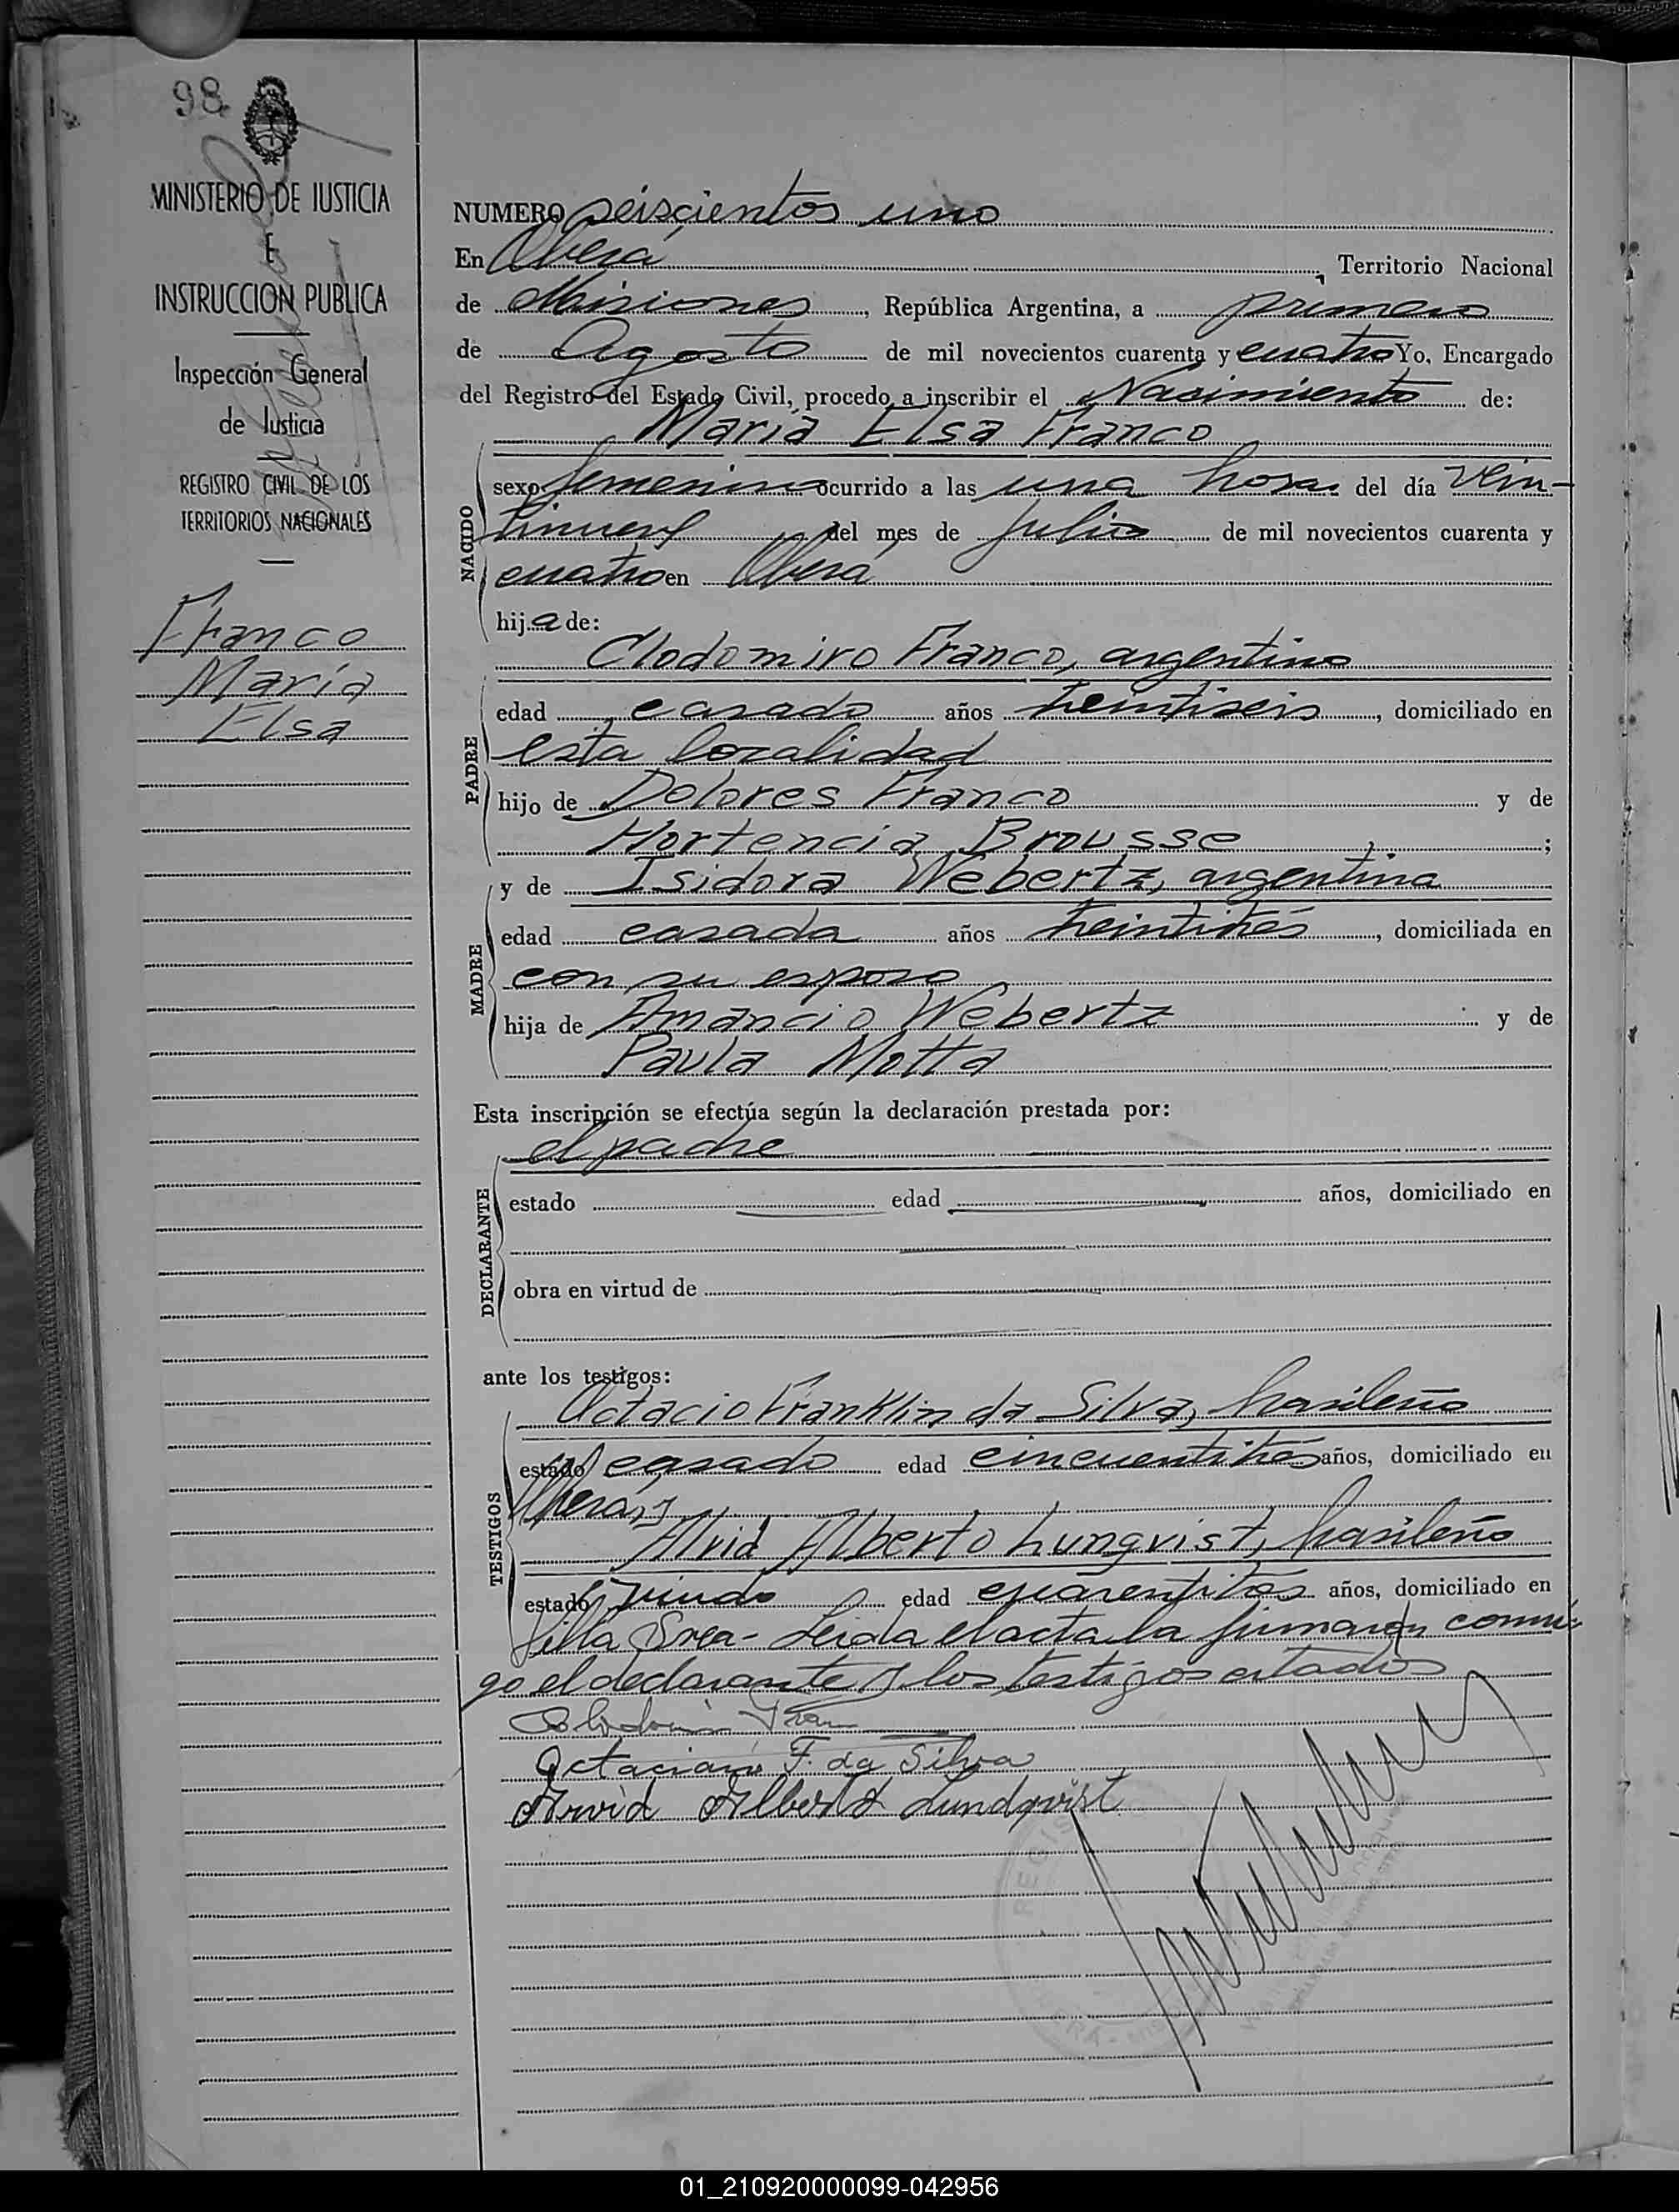 98
MINISTERIO DE JUSTICIA
E
INSTRUCCION PUBLICA
Inspección General
de Justicia
REGISTRO CIVIL DE LOS
TERRITORIOS NACIONALES
Franco
María
Elsa
NUMERO seiscientos uno
En Oberá, Territorio Nacional
de Misiones, República Argentina, a primero
de Agosto de mil novecientos cuarenta y cuatro Yo, Encargado
del Registro del Estado Civil, procedo a inscribir el Nacimiento de:
María Elsa Franco
NACIDO
sexo femenino ocurrido a las una horas del día vein-
tinueve del mes de Julio de mil novecientos cuarenta y
cuatro en Oberá
hija de:
Clodomiro Franco, argentino
PADRE
edad casado años treintiseis, domiciliado en
esta localidad
hijo de Dolores Franco y de
Hortencia Brousse;
MADRE
y de Isidora Webertz, argentina
edad casada años treintitrés, domiciliada en
con su esposo
hija de Amancio Webertz y de
Paula Motta
Esta inscripción se efectúa según la declaración prestada por:
el padre
DECLARANTE
estado edad años, domiciliado en
obra en virtud de
ante los testigos:
TESTIGOS
Octacio Franklin da Silva, brasileño
estado casado edad cincuentitrés años, domiciliado en
Oberá, y
Alvid Alberto Lungvist, brasileño
estado viudo edad cuarentitrés años, domiciliado en
Villa Svea - Leida el acta la firmaron conmi-
go el declarante y los testigos citados
Octaciano F. da Silva
Arvid Alberto Lundqvist
01_210920000099-042956